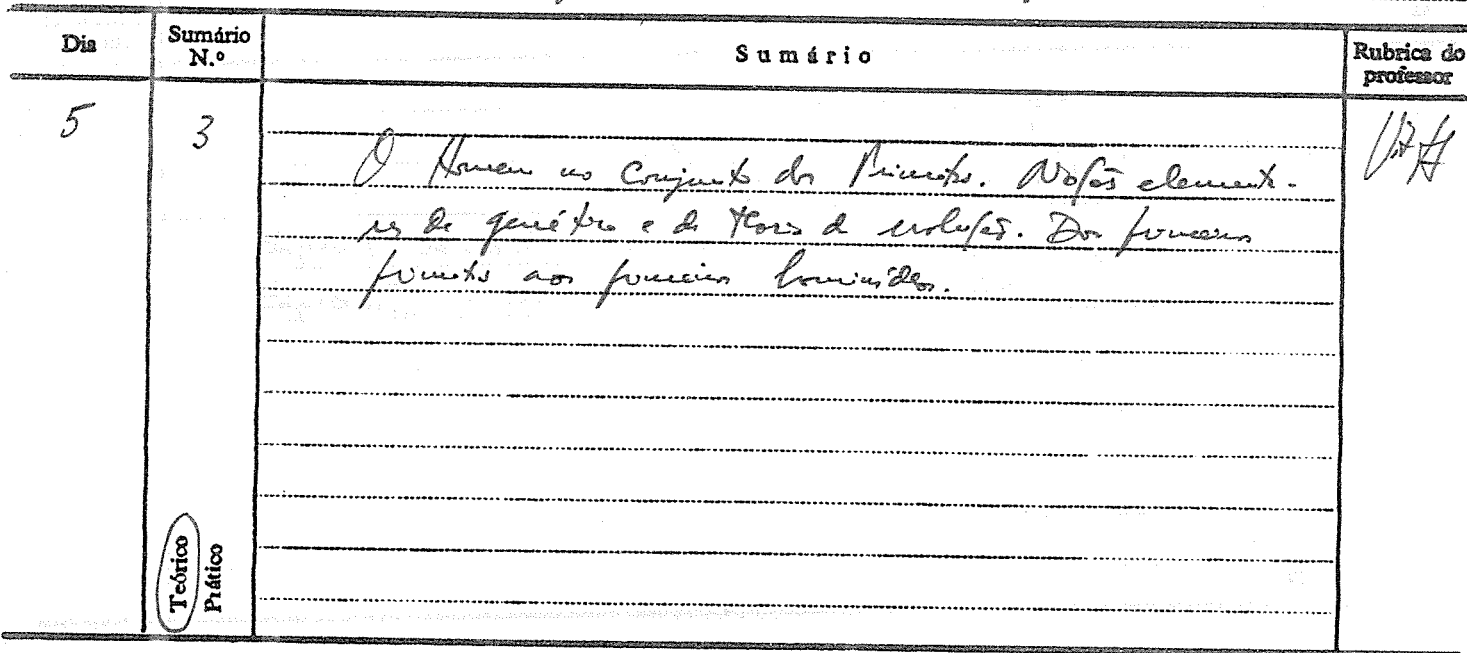 Dia Sumário N.º Sumário Rubrica do professor
5 3
O Homem no Conjunto dos Primatas. Noções elementa-
res de genética e da teoria da evolução. Dos primeiros
primatas aos primeiros hominídeos.
Teórico
Prático